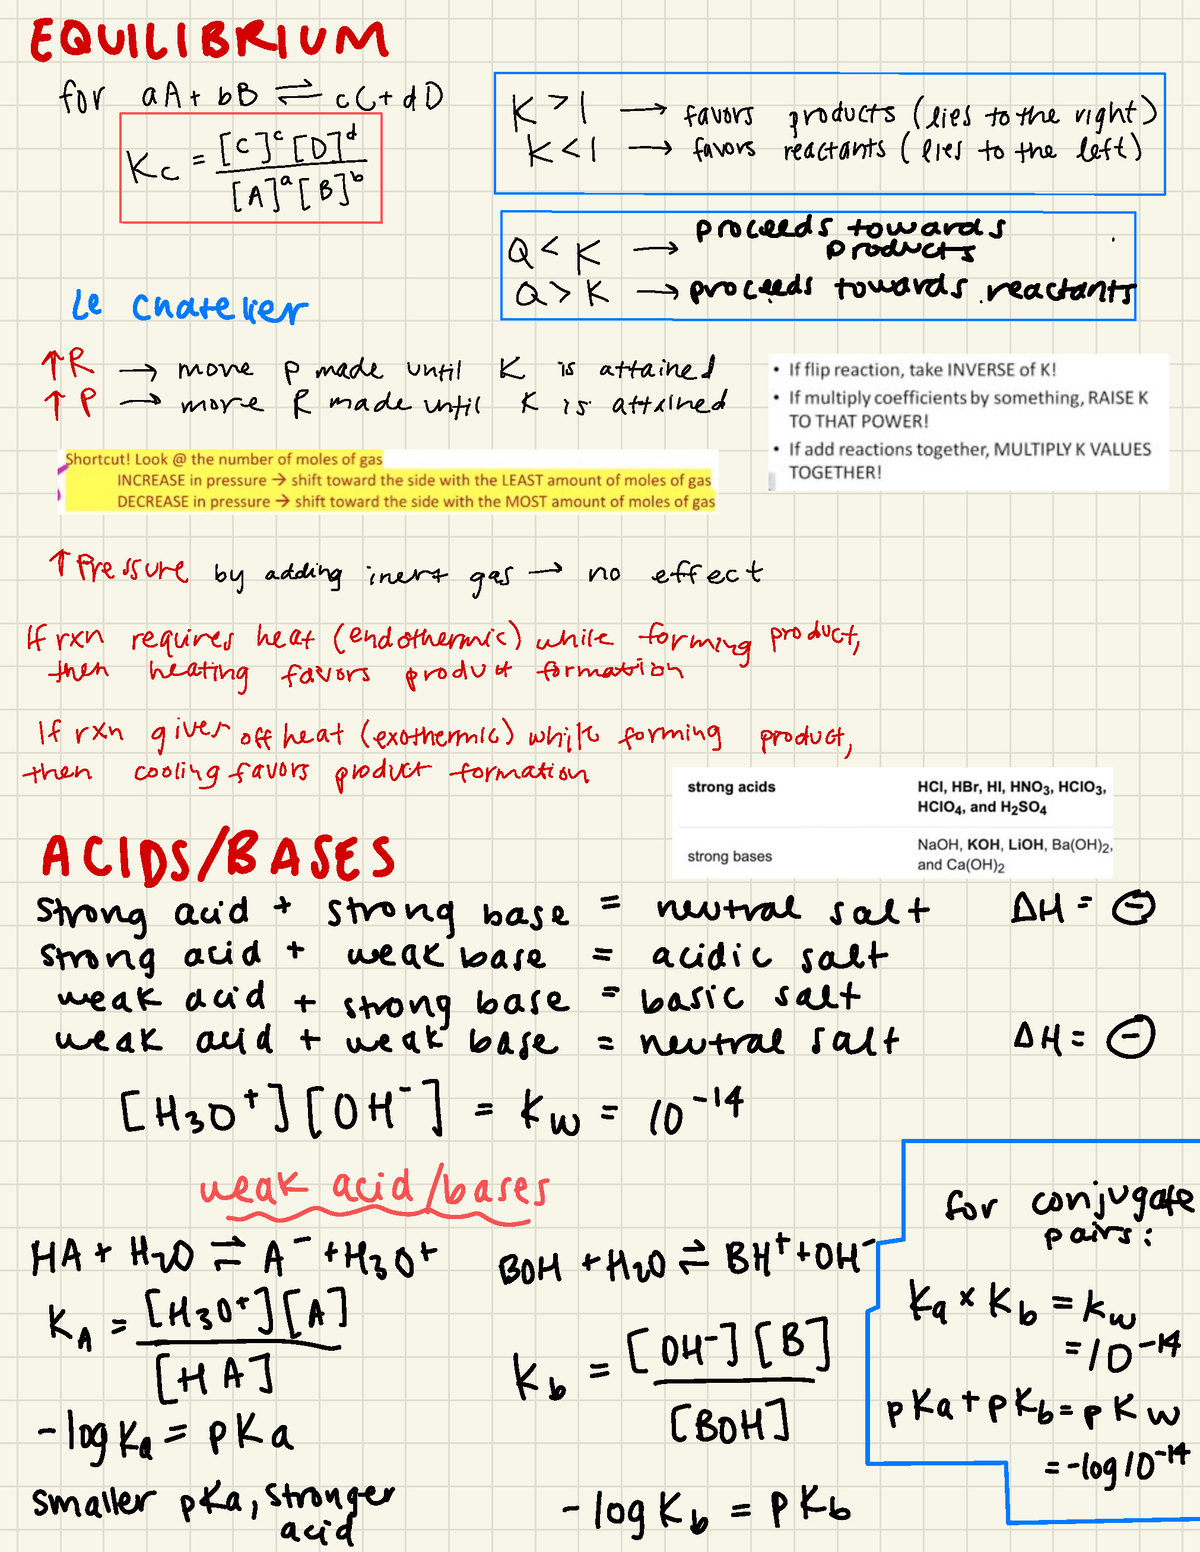 EQUILIBRIUM
for aA + bB ⇌ cC + dD
Kc = [C]ᶜ[D]ᵈ / [A]ᵃ[B]ᵇ
K > 1 → favors products (lies to the right)
K < 1 → favors reactants (lies to the left)
Q < K → proceeds towards products
Q > K → proceeds towards reactants
Le Chatelier
↑R → more P made until K is attained
↑P → more R made until K is attained
• If flip reaction, take INVERSE of K!
• If multiply coefficients by something, RAISE K
TO THAT POWER!
• If add reactions together, MULTIPLY K VALUES
TOGETHER!
Shortcut! Look @ the number of moles of gas
INCREASE in pressure → shift toward the side with the LEAST amount of moles of gas
DECREASE in pressure → shift toward the side with the MOST amount of moles of gas
↑ Pressure by adding inert gas → no effect
If rxn requires heat (endothermic) while forming product,
then heating favors product formation
If rxn gives off heat (exothermic) while forming product,
then cooling favors product formation
strong acids HCl, HBr, HI, HNO₃, HClO₃,
HClO₄, and H₂SO₄
strong bases NaOH, KOH, LiOH, Ba(OH)₂,
and Ca(OH)₂
ACIDS/BASES
strong acid + strong base = neutral salt ΔH = ⊖
strong acid + weak base = acidic salt
weak acid + strong base = basic salt
weak acid + weak base = neutral salt ΔH = ⊖
[H₃O⁺][OH⁻] = Kw = 10⁻¹⁴
weak acid/bases
HA + H₂O ⇌ A⁻ + H₃O⁺
K_A = [H₃O⁺][A] / [HA]
-log Ka = pKa
smaller pKa, stronger
acid
BOH + H₂O ⇌ BH⁺ + OH⁻
Kb = [OH⁻][B] / [BOH]
-log Kb = pKb
for conjugate
pairs:
Ka × Kb = Kw
= 10⁻¹⁴
pKa + pKb = pKw
= -log 10⁻¹⁴